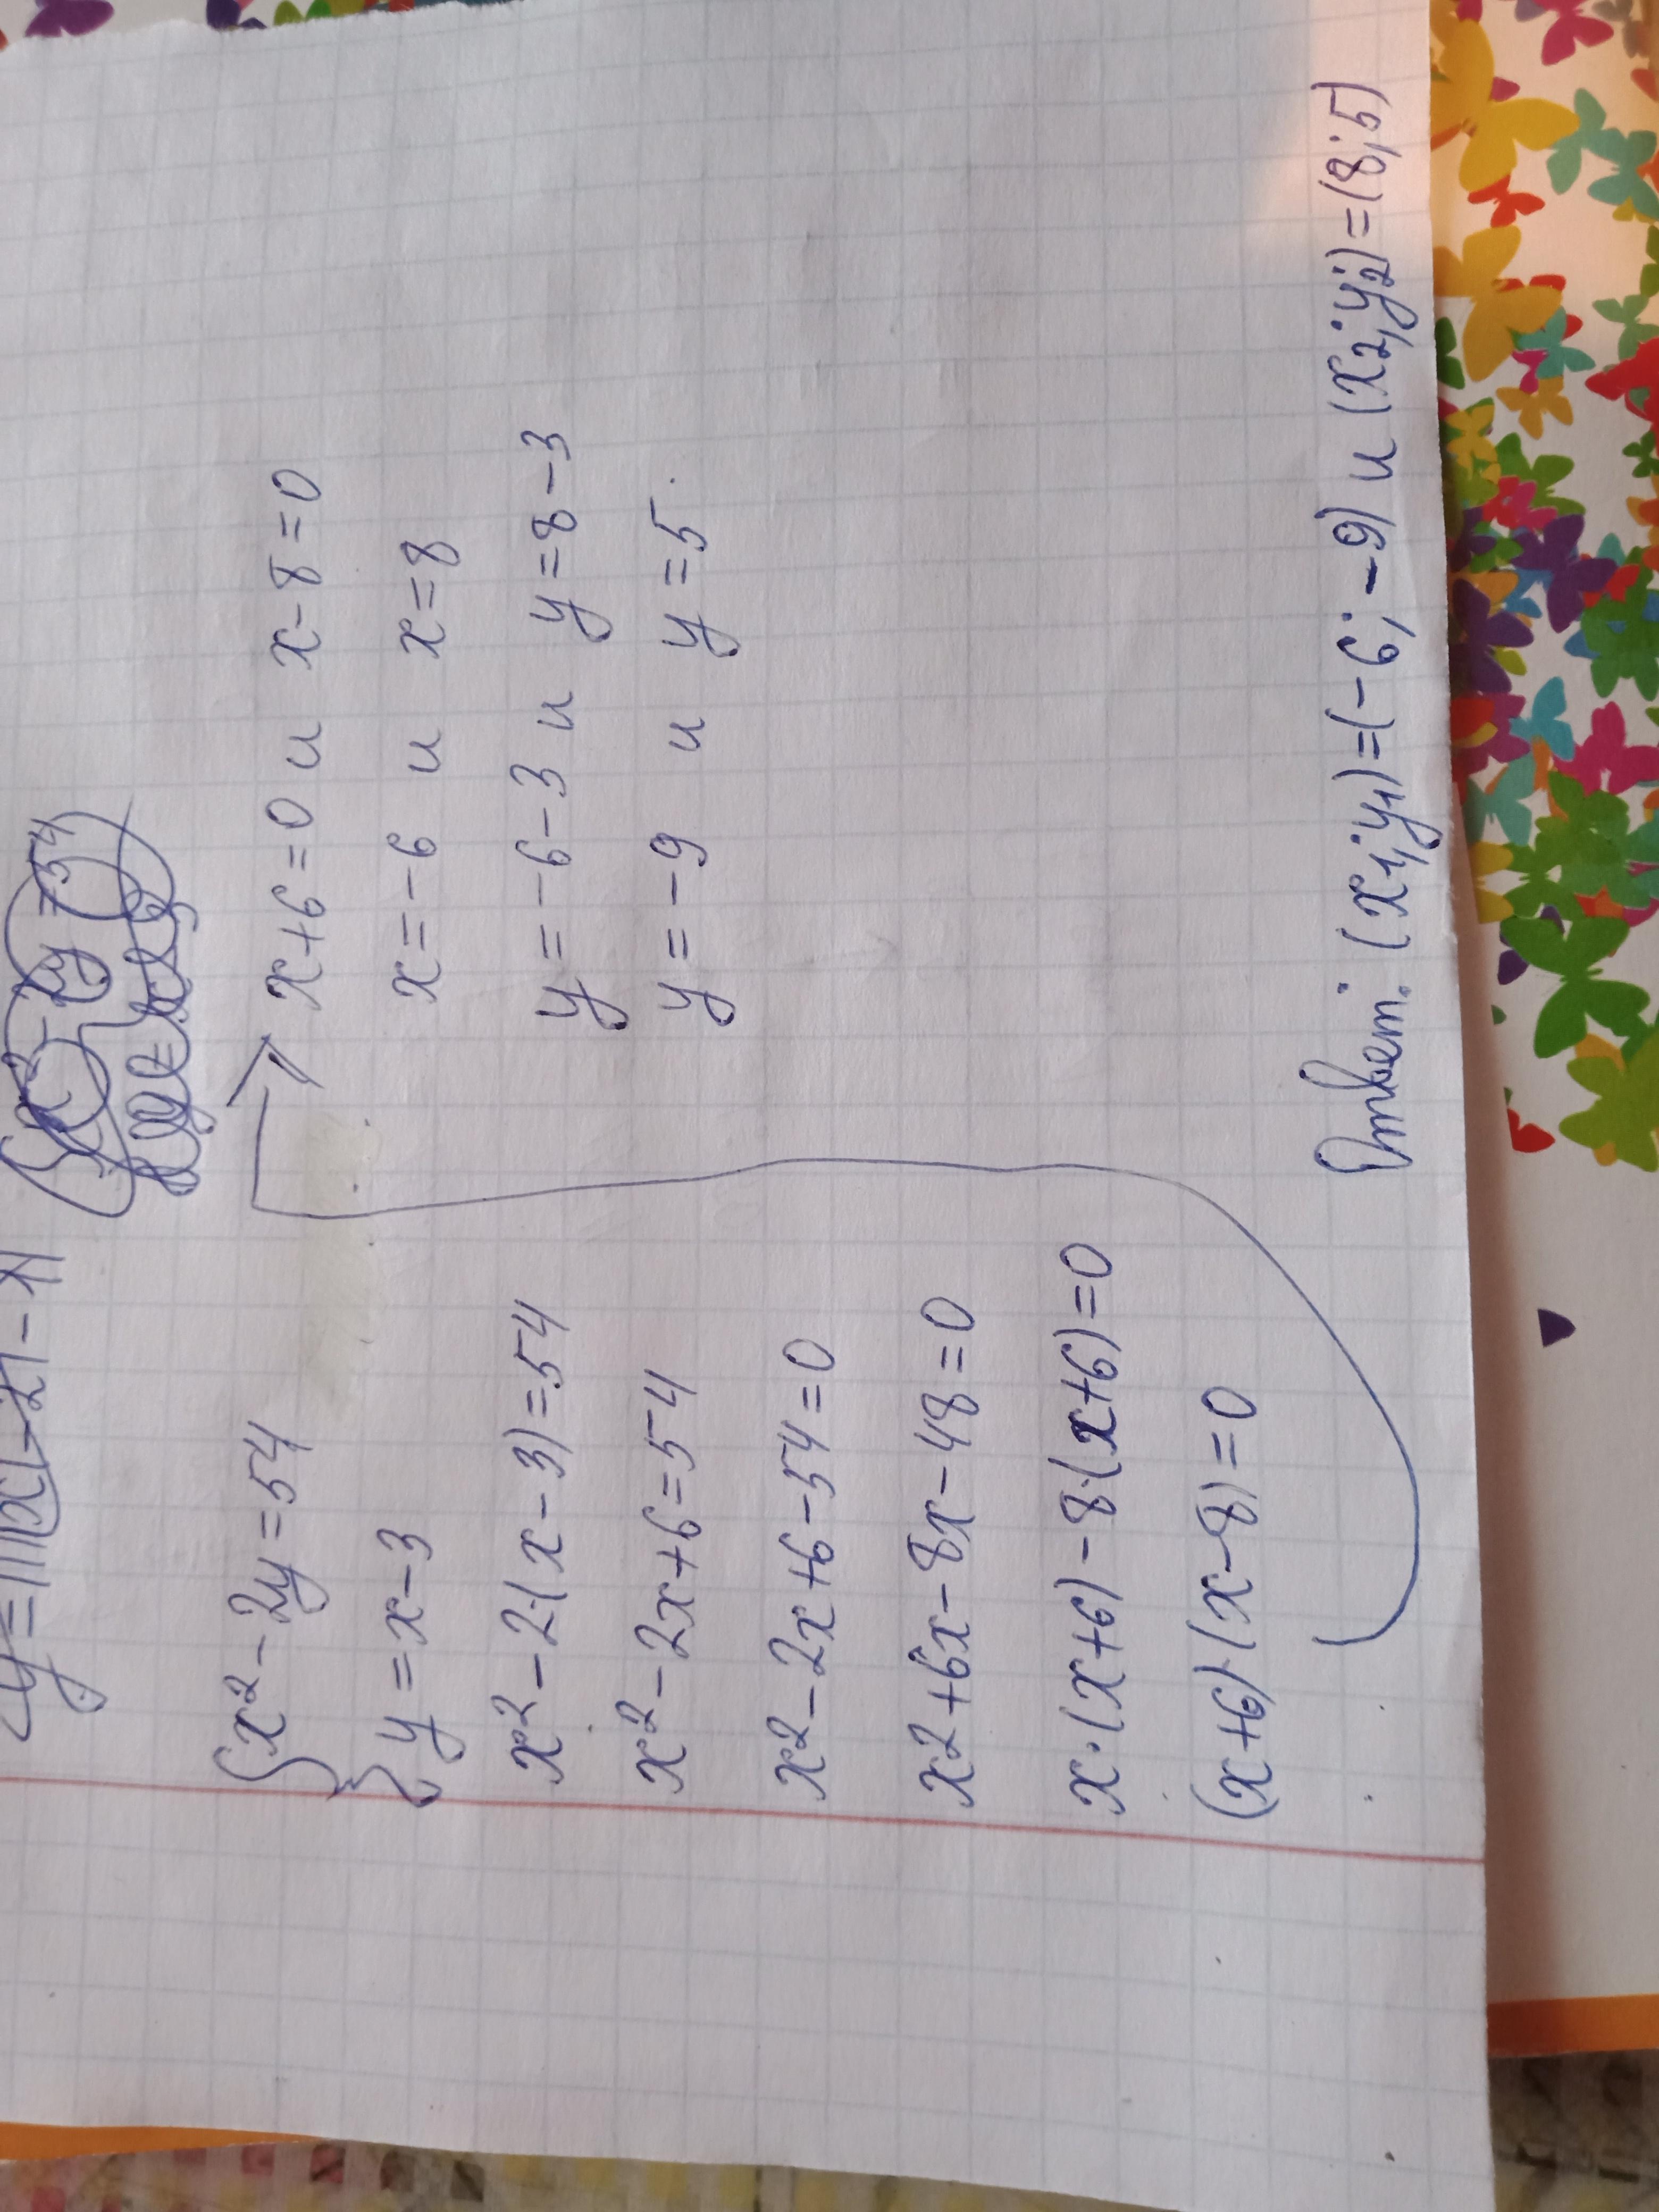 x² - 2y = 54
y = x - 3
x² - 2·(x - 3) = 54
x² - 2x + 6 = 54
x² - 2x + 6 - 54 = 0
x² + 6x - 8x - 48 = 0
x·(x+6) - 8·(x+6) = 0
(x+6)·(x-8) = 0
x+6=0 и x-8=0
x=-6 и x=8
y=-6-3 и y=8-3
y=-9 и y=5
Ответ: (x₁;y₁)=(-6;-9) и (x₂;y₂)=(8;5)